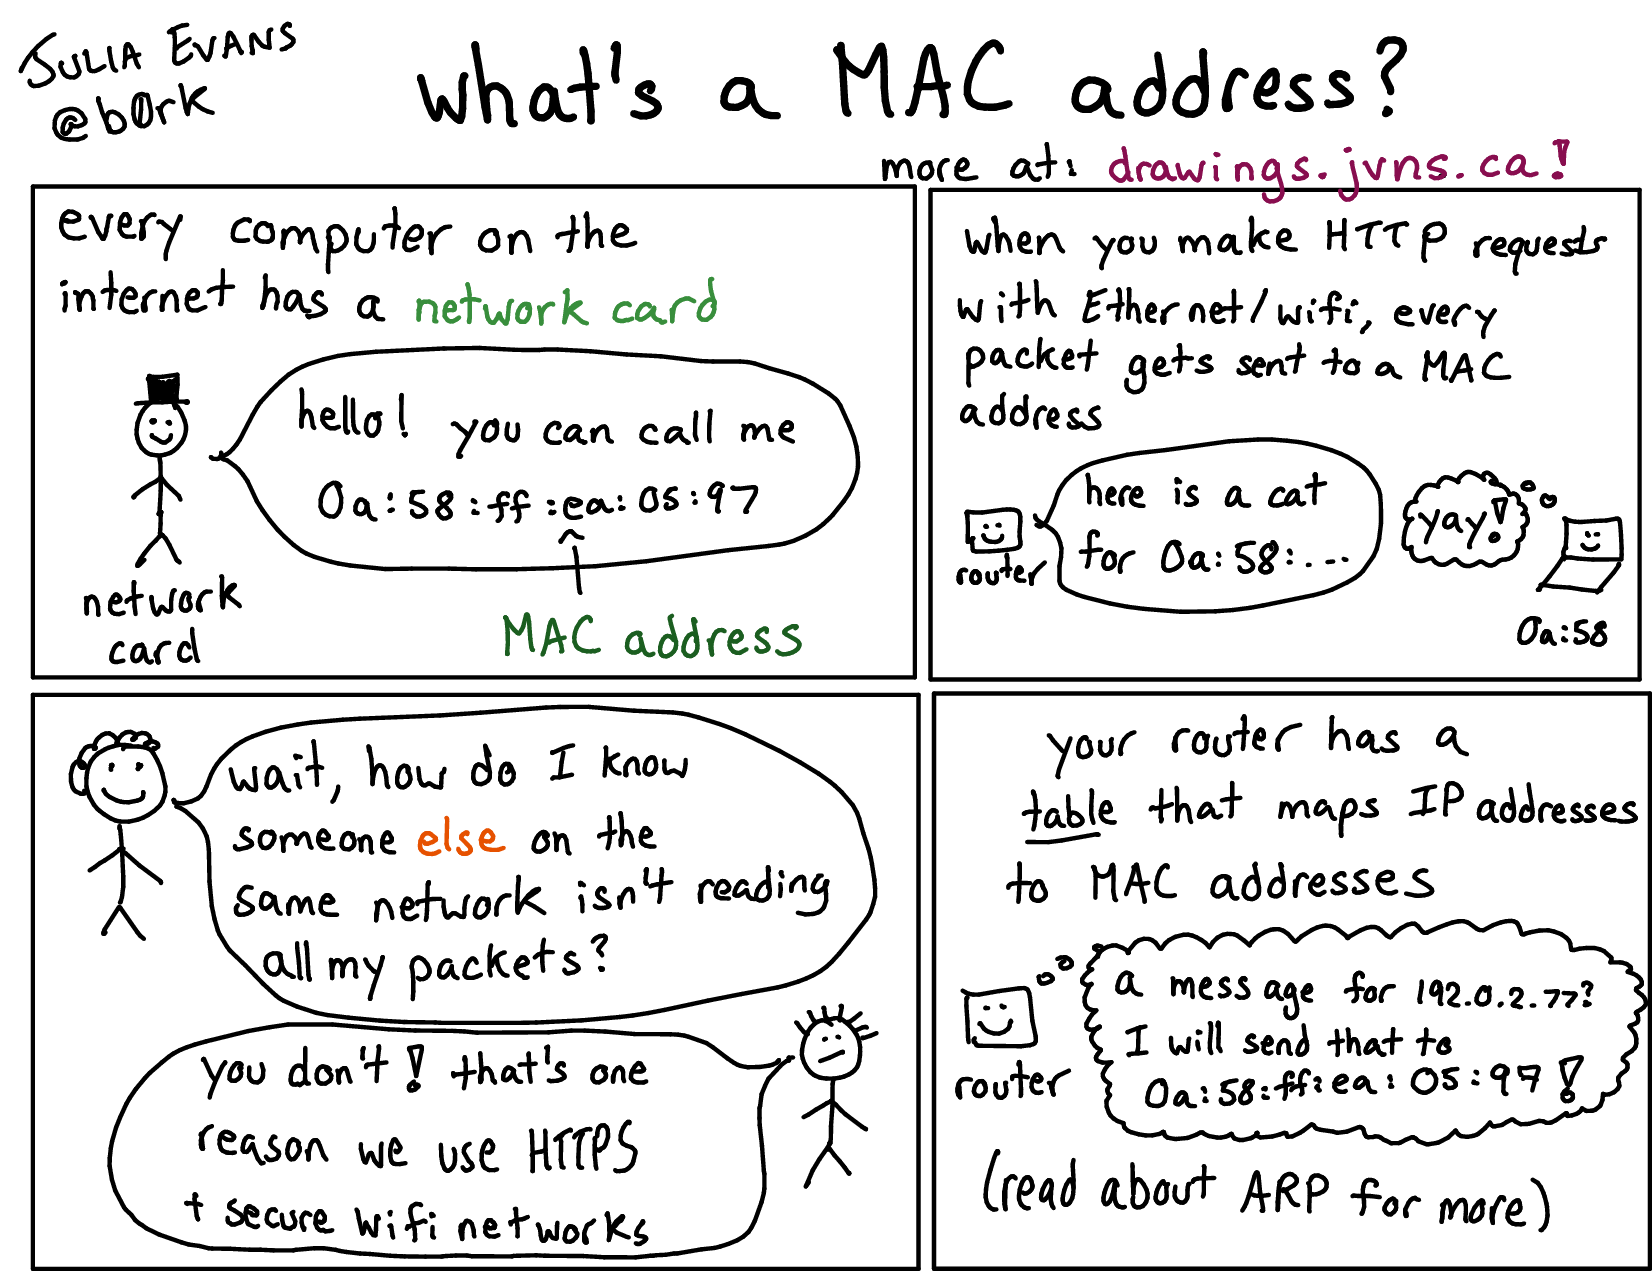 JULIA EVANS
@b0rk
what's a MAC address?
more at: drawings.jvns.ca!
every computer on the
internet has a network card
hello! you can call me
0a:58:ff:ea:05:97
MAC address
network
card
when you make HTTP requests
with Ethernet/wifi, every
packet gets sent to a MAC
address
here is a cat
for 0a:58:...
router
yay!
0a:58
wait, how do I know
someone else on the
same network isn't reading
all my packets?
you don't! that's one
reason we use HTTPS
+ secure wifi networks
your router has a
table that maps IP addresses
to MAC addresses
a message for 192.0.2.77?
I will send that to
0a:58:ff:ea:05:97!
router
(read about ARP for more)